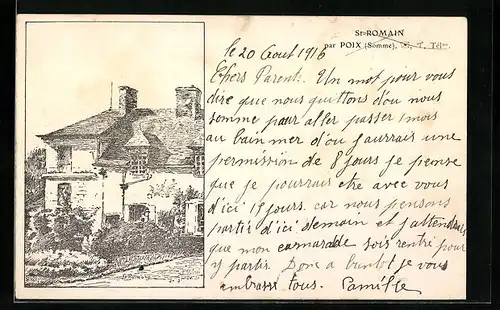 St-ROMAIN
par POIX (Somme),
le 20 Aout 1916
Chers Parents. Un mot pour vous
dire que nous quittons d'ou nous
somme pour aller passer 1 mois
au bain mer d'ou j'aurrais une
permission de 8 jours je pense
que je pourrais etre avec vous
d'ici 15 jours. car nous pensons
partir d'ici demain et j'attendrais
que mon camarade sois rentré pour
y partir. Donc a bientot je vous
embrasse tous. Camille